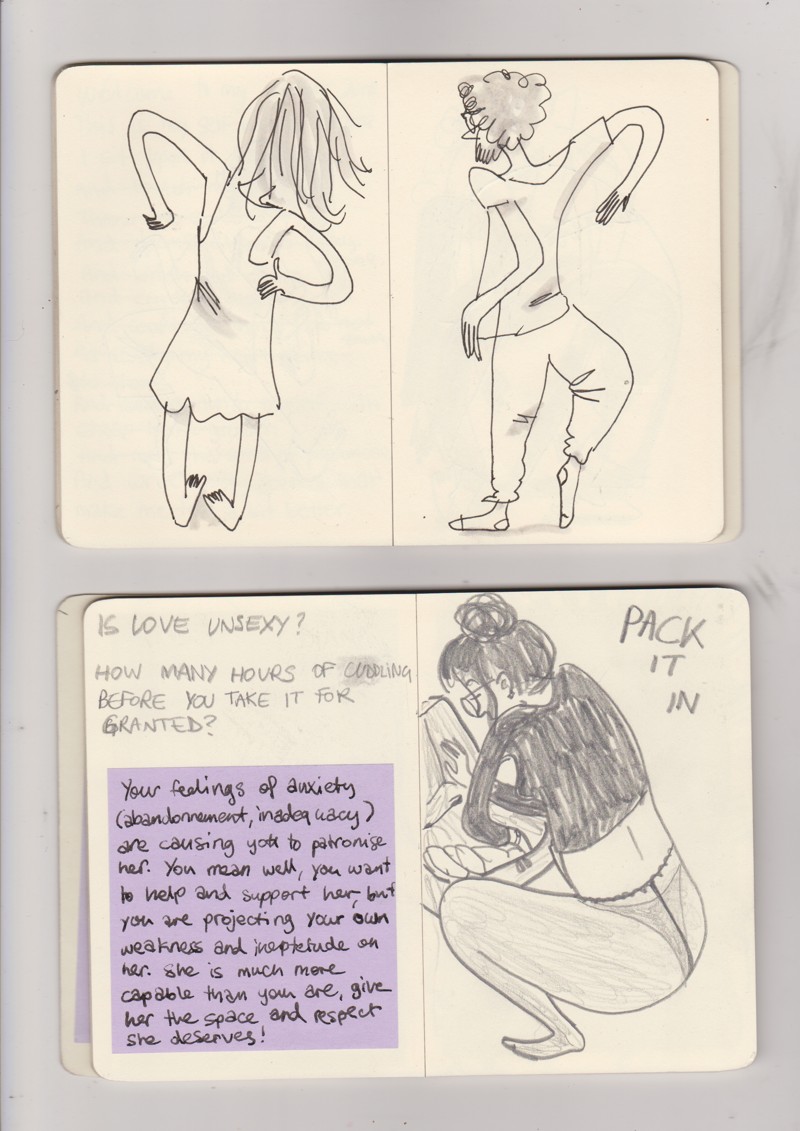 IS LOVE UNSEXY?
HOW MANY HOURS OF CUDDLING
BEFORE YOU TAKE IT FOR
GRANTED?
Your feelings of anxiety
(abandonnement, inadequacy)
are causing you to patronise
her. You mean well, you want
to help and support her, but
you are projecting your own
weakness and ineptetude on
her. She is much more
capable than you are, give
her the space and respect
she deserves!
PACK
IT
IN